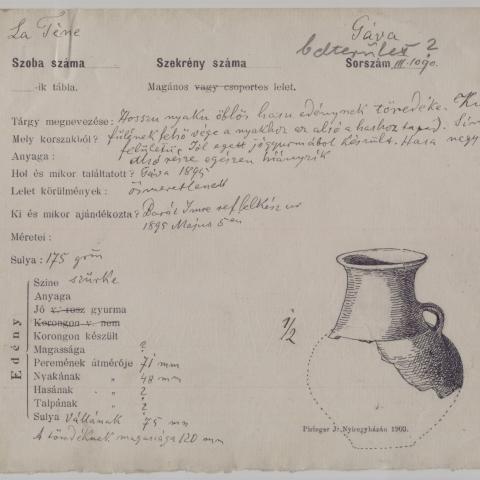 La Tène
Gáva
belterület 2
Szoba száma Szekrény száma Sorszám III.1090.
-ik tábla. Magános vagy csoportos lelet.
Tárgy megnevezése: Hosszu nyaku öblös hasu edénynek töredéke.
Mely korszakból? fülének felső vége a nyakhoz az alsó a hashoz tapad.
Anyaga: felületü Jól égett jó gyurmából készült. Hasa nagy
alsó része egészen hiányzik
Hol és mikor találtatott? Gáva 1895
Lelet körülmények: ösmeretlenek
Ki és mikor ajándékozta? Imre ref lelkész ur
1895 Május 5-én
Méretei:
Sulya: 175 grm
Edény
Szine szürke
Anyaga
Jó v. rosz gyurma
Korongon v. nem
Korongon készült
Magassága ?
Peremének átmérője 71 mm
Nyakának „ 48 mm
Hasának „ ?
Talpának „ ?
Sulya Vállának 75 mm
A töredéknek magassága 120 mm
1/2
Piringer J. Nyiregyházán 1900.